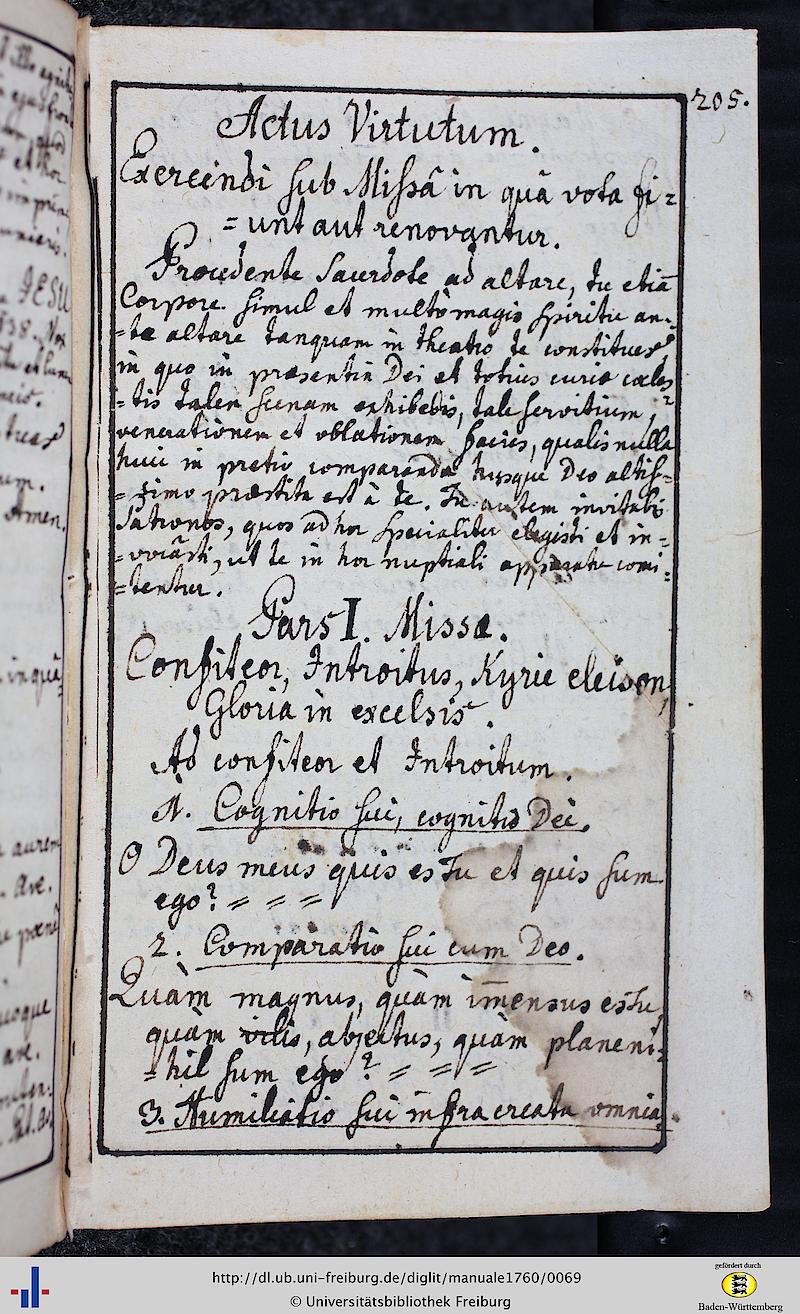 205.
Actus Virtutum.
Exercendi sub Missâ in quâ vota fi=
=unt aut renovantur.
Procedente Sacerdote ad altare, tu etiā
Corpore simul et multò magis spiritu an=
=te altare tanquam in theatro te constitues,
in quo in præsentia Dei et totius curiæ cæles
=tis talem scenam exhibebis, tale servitium,
venerationem et oblationem facies, qualis nulla
huic in pretio comparanda husque Deo altis=
=simo præstita est à te. Tu autem invitabis
Patronos, quos ad hoc specialiter elegisti et in=
=vocâsti, ut te in hoc nuptiali apparatu comi=
=tentur.
Pars I. Missæ.
Confiteor, Introitus, Kyrie eleison,
Gloria in excelsis.
Ad confiteor et Introitum.
1. Cognitio sui, cognitio Dei.
O Deus meus quis es Tu et quis sum
ego? = = =
2. Comparatio sui cum Deo.
Quàm magnus, quàm im̄ensus es Tu,
quàm vilis, abjectus, quàm plane ni=
=hil sum ego? = = =
3. Humiliatio sui infra creata omnia.
JESU
Amen.
aurem
Ave.
ave.
http://dl.ub.uni-freiburg.de/diglit/manuale1760/0069
© Universitätsbibliothek Freiburg
gefördert durch
Baden-Württemberg